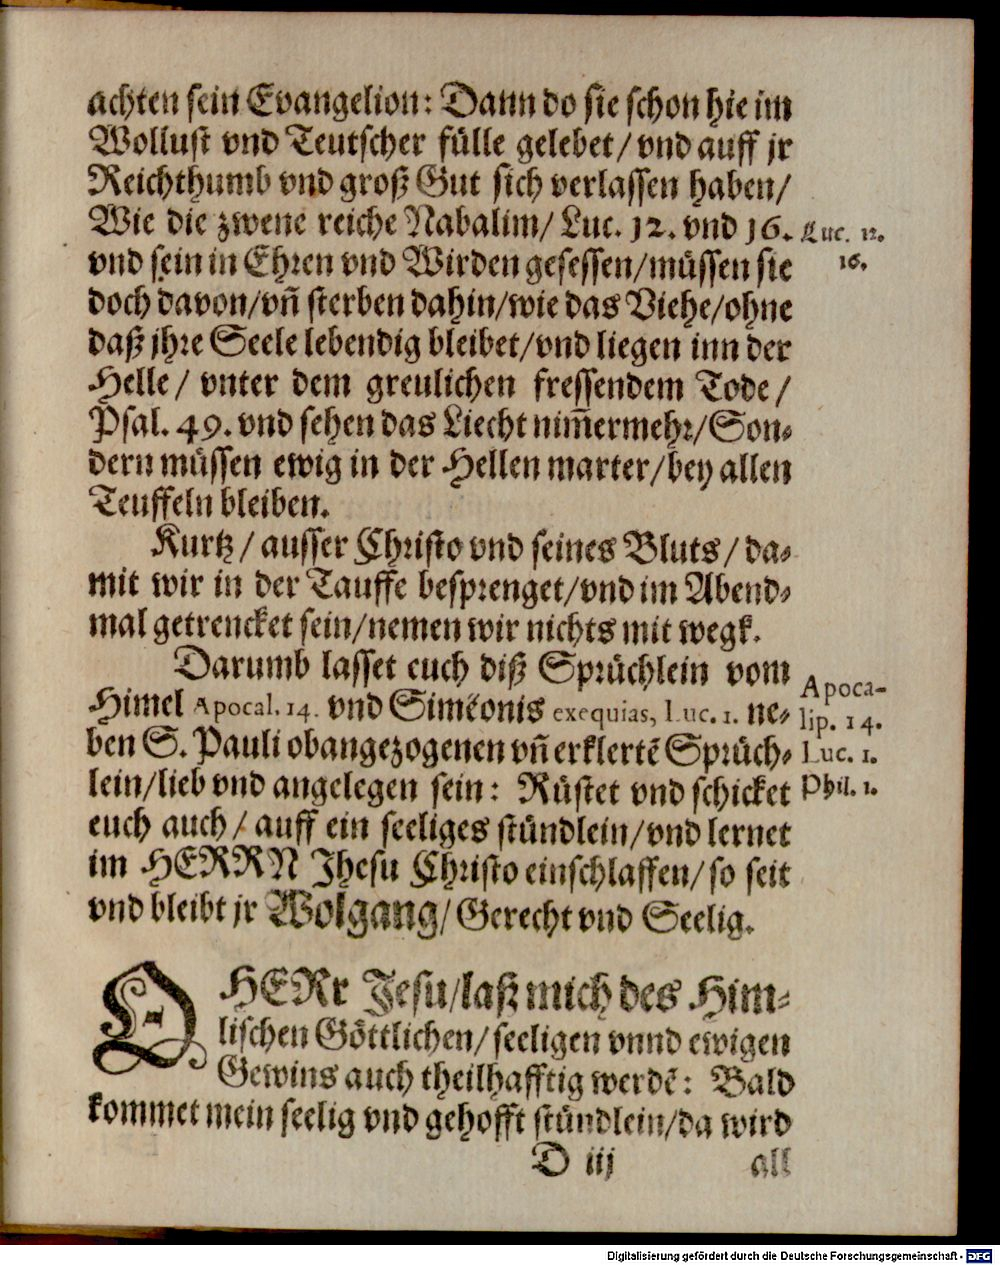 achten sein Evangelion: Dann do sie schon hie im
Wollust vnd Teutscher fülle gelebet/ vnd auff jr
Reichthumb vnd groß Gut sich verlassen haben/
Wie die zwene reiche Nabalim/ Luc. 12. vnd 16. Luc. 12.
vnd sein in Ehren vnd Wirden gesessen/müssen sie 16.
doch davon/vñ sterben dahin/wie das Viehe/ohne
daß jhre Seele lebendig bleibet/vnd liegen inn der
Helle/ vnter dem greulichen fressendem Tode/
Psal. 49. vnd sehen das Liecht nim̄ermehr/Son-
dern müssen ewig in der Hellen marter/bey allen
Teuffeln bleiben.
Kurtz/ ausser Christo vnd seines Bluts/ da-
mit wir in der Tauffe besprenget/vnd im Abend-
mal getrencket sein/nemen wir nichts mit wegk.
Darumb lasset euch diß Sprüchlein vom Apoca-
Himel Apocal. 14. vnd Simeonis exequias, Luc. 1. ne- lip. 14.
ben S. Pauli obangezogenen vñ erklertẽ Sprüch- Luc. 1.
lein/lieb vnd angelegen sein: Rüstet vnd schicket Phil. 1.
euch auch/ auff ein seeliges stündlein/vnd lernet
im HERRN Jhesu Christo einschlaffen/ so seit
vnd bleibt jr Wolgang/ Gerecht vnd Seelig.
O HERr Jesu/laß mich des Him-
lischen Göttlichen/ seeligen vnnd ewigen
Gewins auch theilhafftig werdẽ: Bald
kommet mein seelig vnd gehofft stündlein/da wird
D iij all
Digitalisierung gefördert durch die Deutsche Forschungsgemeinschaft - DFG